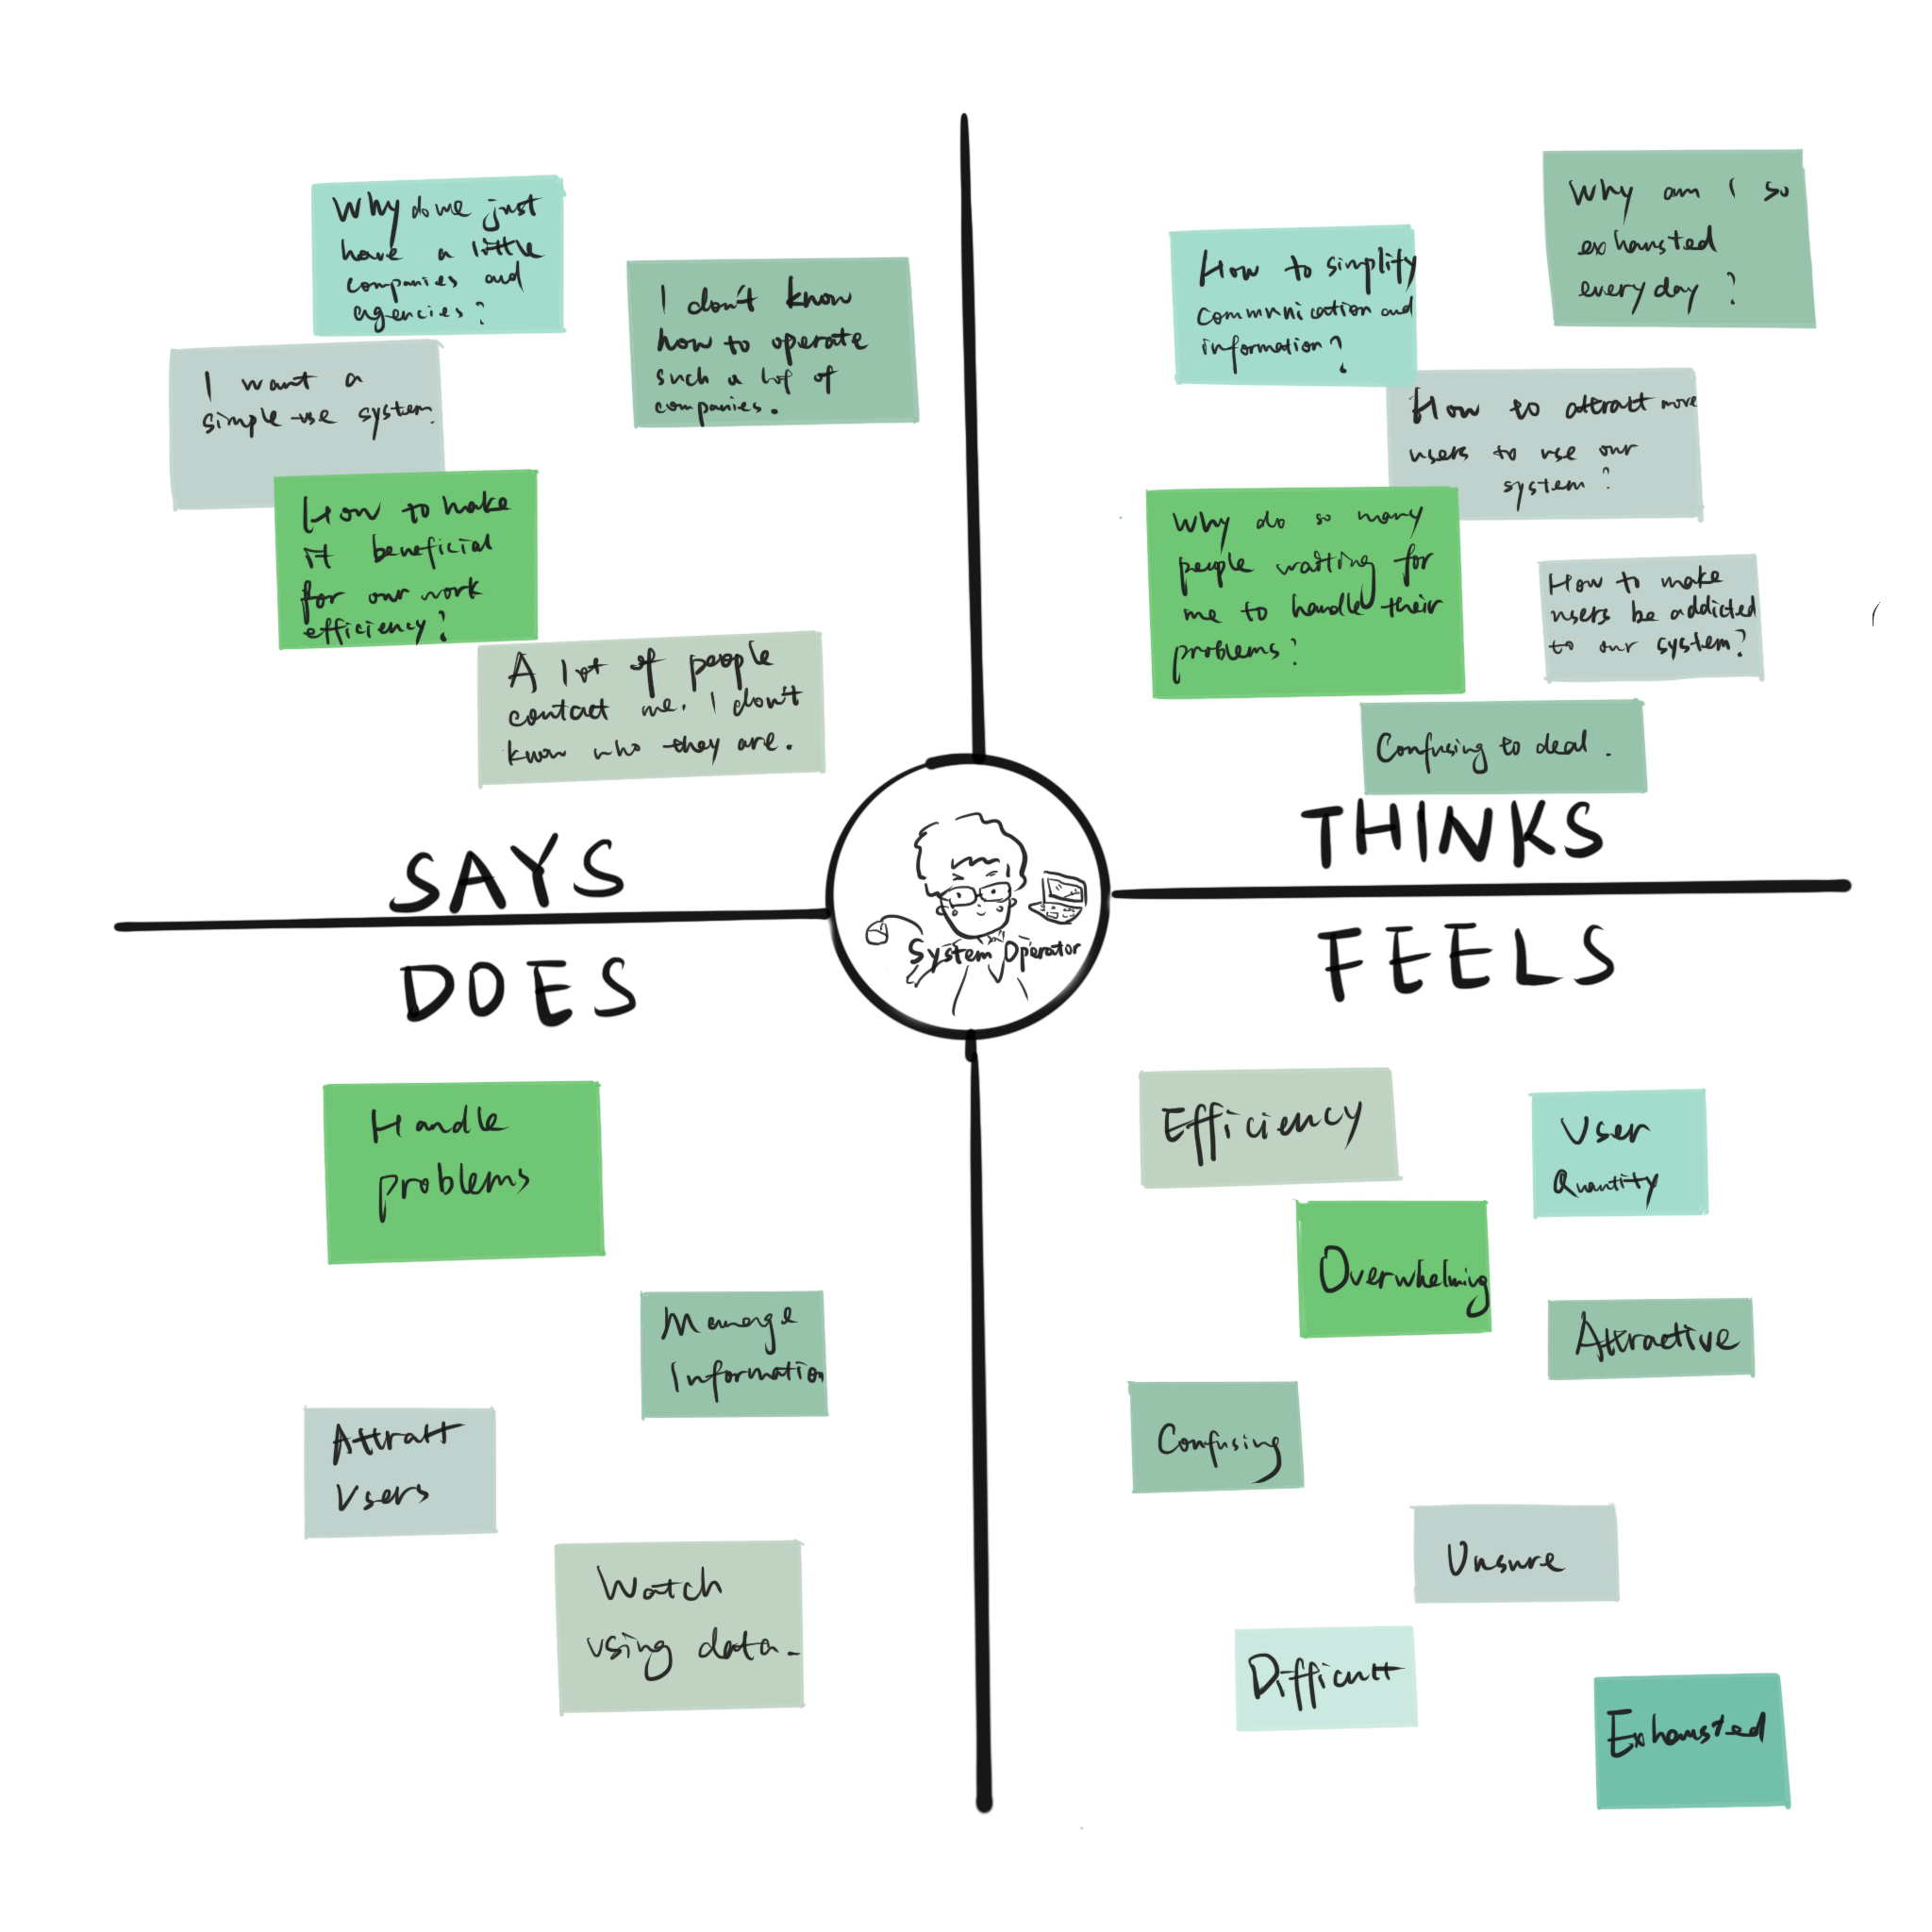 Why do we just
have a little
companies and
agencies?
I don't know
how to operate
such a lot of
companies.
I want a
simple-use system.
How to make
it beneficial
for our work
efficiency?
A lot of people
contact me. I don't
know who they are.
SAYS
How to simplify
communication and
information?
Why am I so
exhausted
every day?
How to attract more
users to use our
system?
Why do so many
people waiting for
me to handle their
problems?
How to make
users be addicted
to our system?
Confusing to deal.
THINKS
System Operator
DOES
Handle
problems
Manage
Information
Attract
Users
Watch
using data.
FEELS
Efficiency
User
Quantity
Overwhelming
Attractive
Confusing
Unsure
Difficult
Exhausted